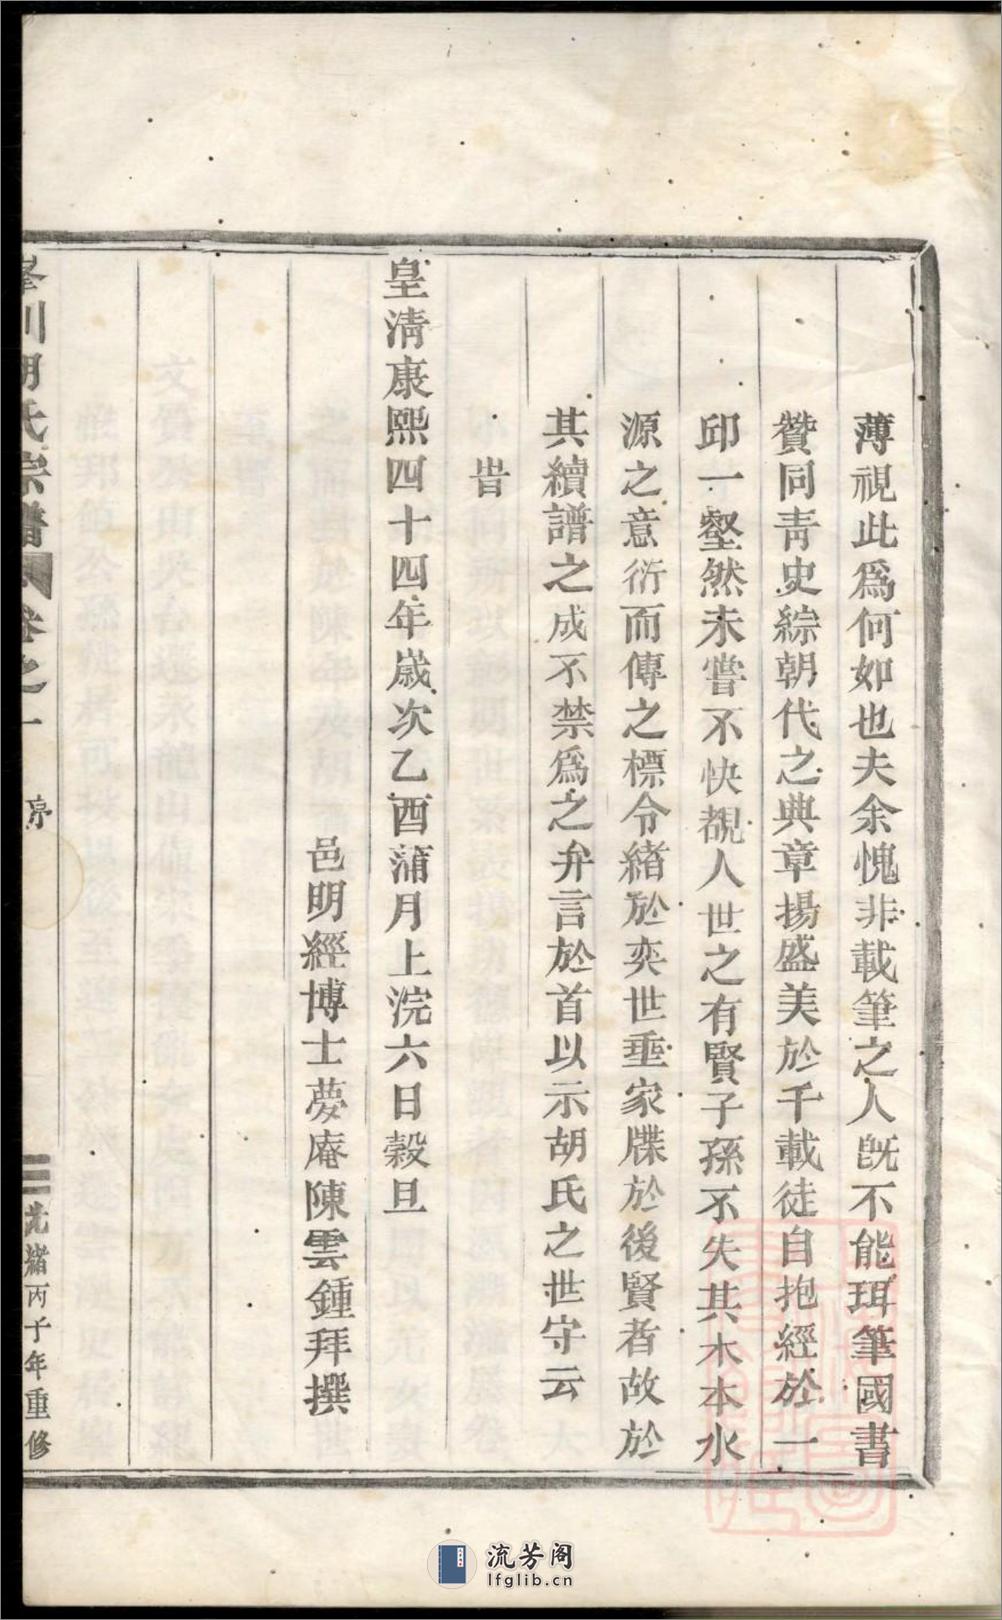 薄視此爲何如也夫余愧非載筆之人旣不能珥筆國書
贊同靑史綜朝代之典章揚盛美於千載徒自抱經於一
邱一壑然未嘗不快覩人世之有賢子孫不失其木本水
源之意衍而傳之標令緒於奕世垂家牒於後賢者故於
其續譜之成不禁爲之弁言於首以示胡氏之世守云
旹
皇淸康熙四十四年歲次乙酉蒲月上浣六日榖旦
邑明經博士夢庵陳雲鍾拜撰
川胡氏宗譜 卷之一 序 光緒丙子年重修
流芳阁
lfglib.cn